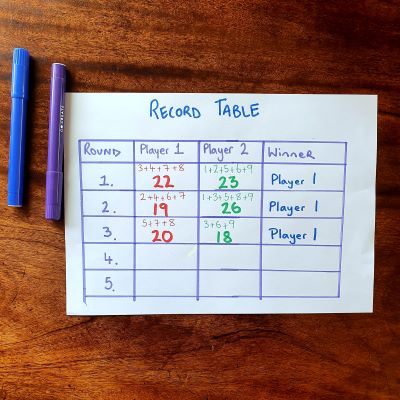 RECORD TABLE
ROUND Player 1 Player 2 Winner
3+4+7+8 1+2+5+6+9
1. 22 23 Player 1
2+4+6+7 1+3+5+8+9
2. 19 26 Player 1
5+7+8 3+6+9
3. 20 18 Player 1
4.
5.